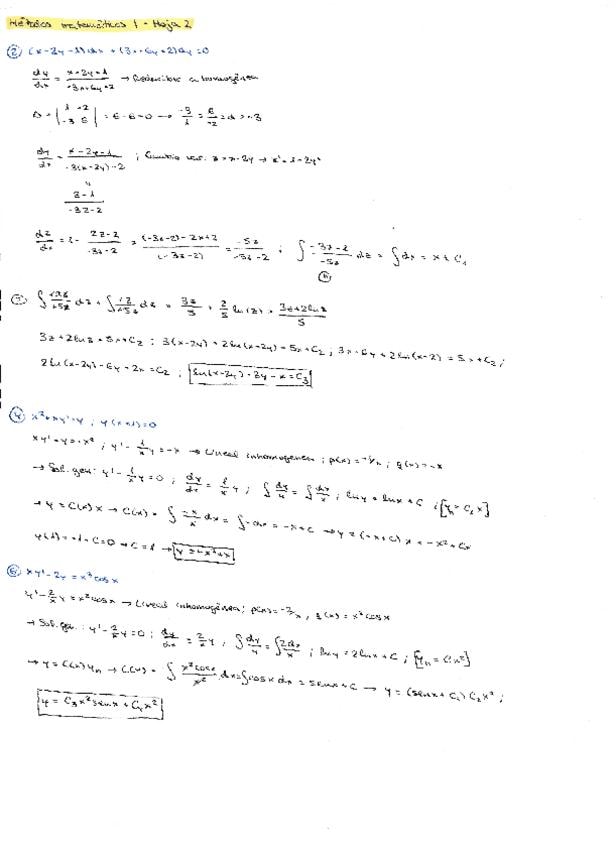 Métodos matemáticos 1 - Hoja 2
② (x-2y-1)dx + (3x-6y+2)dy=0
dy/dx = x-2y-1 / -3x+6y-2 → Reducible a homogénea
Δ = | 1 -2 -3 6 | = 6-6=0 → -3/1 = 6/-2 = α = -3
dy/dx = x-2y-1 / -3(x-2y)-2 ; Cambio var. z = x-2y → z' = 1-2y'
z-1 / -3z-2
dz/dx = 1 - 2z-2 / -3z-2 = (-3z-2)-2z+2 / (-3z-2) = -5z / -3z-2 ; ∫ -3z-2 / -5z dz = ∫ dx = x + C₁
3z+2lnz = 5x+C₂ ; 3(x-2y)+2ln(x-2y) = 5x+C₂ ; 3x-6y+2ln(x-2y) = 5x+C₂ ;
2ln(x-2y)-6y-2x=C₂ ; ln(x-2y)-3y-x=C₃
④ x²+xy'=y ; y(x=1)=0
xy'-y=-x² ; y'- 1/x y = -x → Lineal inhomogénea ; p(x)=-1/x ; g(x)=-x
→ Sol. gen: y'- 1/x y=0 ; dy/dx = 1/x y ; ∫ dy/y = ∫ dx/x ; lny = lnx + C ; [yₕ = C₁x]
→ y = C(x)x → C(x) = ∫ -x/x dx = ∫ -dx = -x+C → y=(-x+C)x = -x²+Cx
y(1) = -1+C=0 → C=1 → y=-x²+x
xy'-2y = x³cosx
y'- 2/x y = x²cosx → Lineal inhomogénea ; p(x)=-2/x , g(x) = x²cosx
→ Sol. gen: y'- 2/x y=0 ; dy/dx = 2/x y ; ∫ dy/y = ∫ 2dx/x ; lny = 2lnx + C ; [yₕ = C₁x²]
→ y=C(x)yₕ → C(x) = ∫ x²cosx / x² dx = ∫ cosx dx = senx+C → y = (senx+C₁)C₂x² ;
y = C₃x²senx + C₄x²